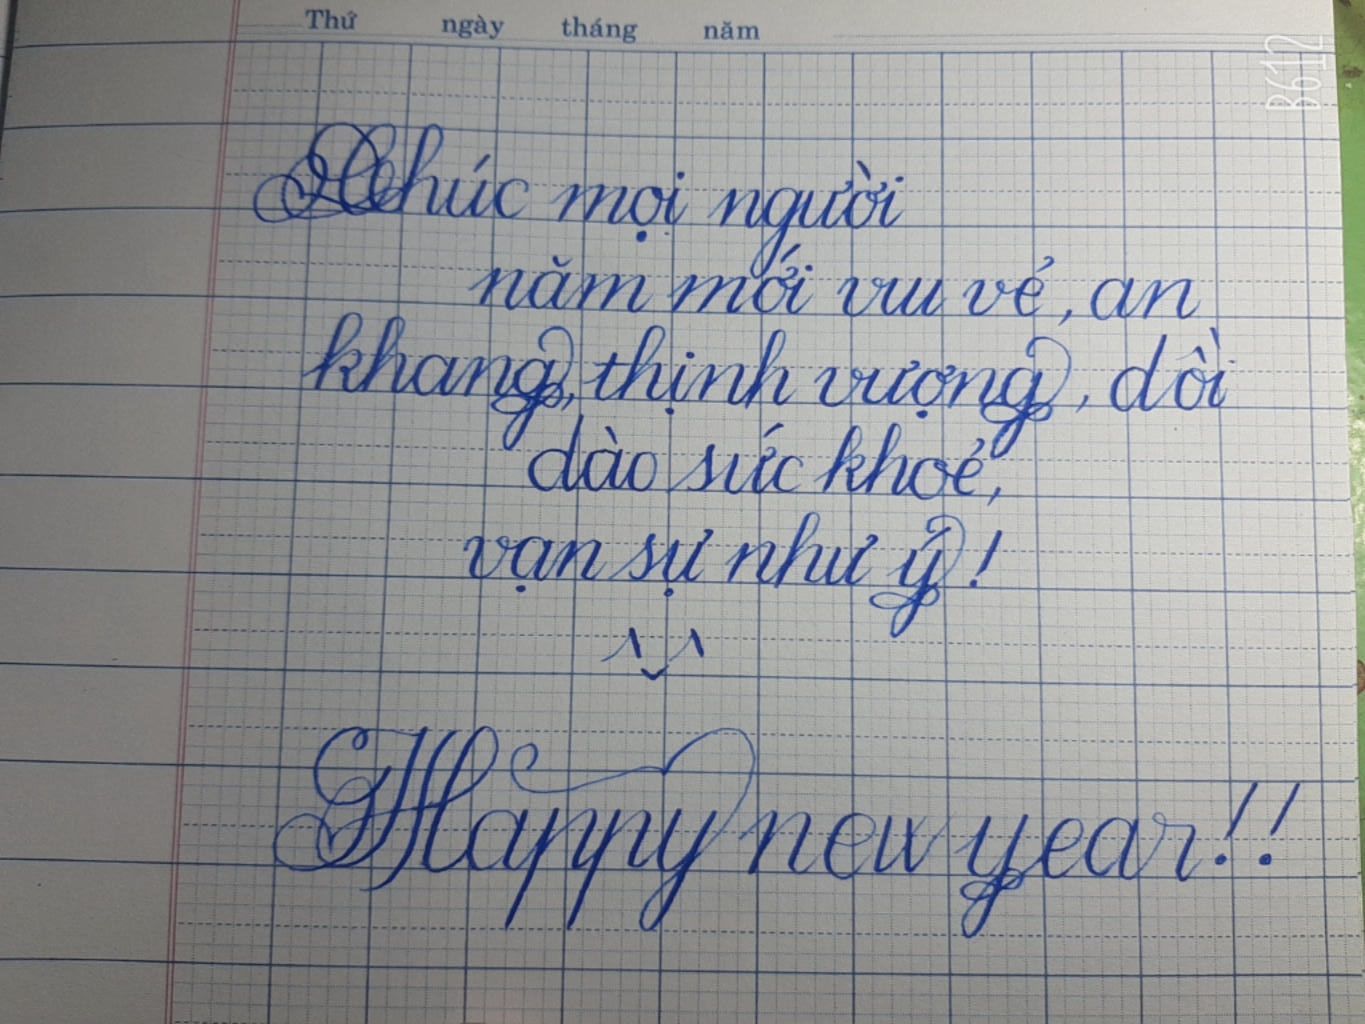 Thứ ngày tháng năm
B612
Chúc mọi người
năm mới vui vẻ, an
khang, thịnh vượng, dồi
dào sức khoẻ,
vạn sự như ý!
Happy new year!!